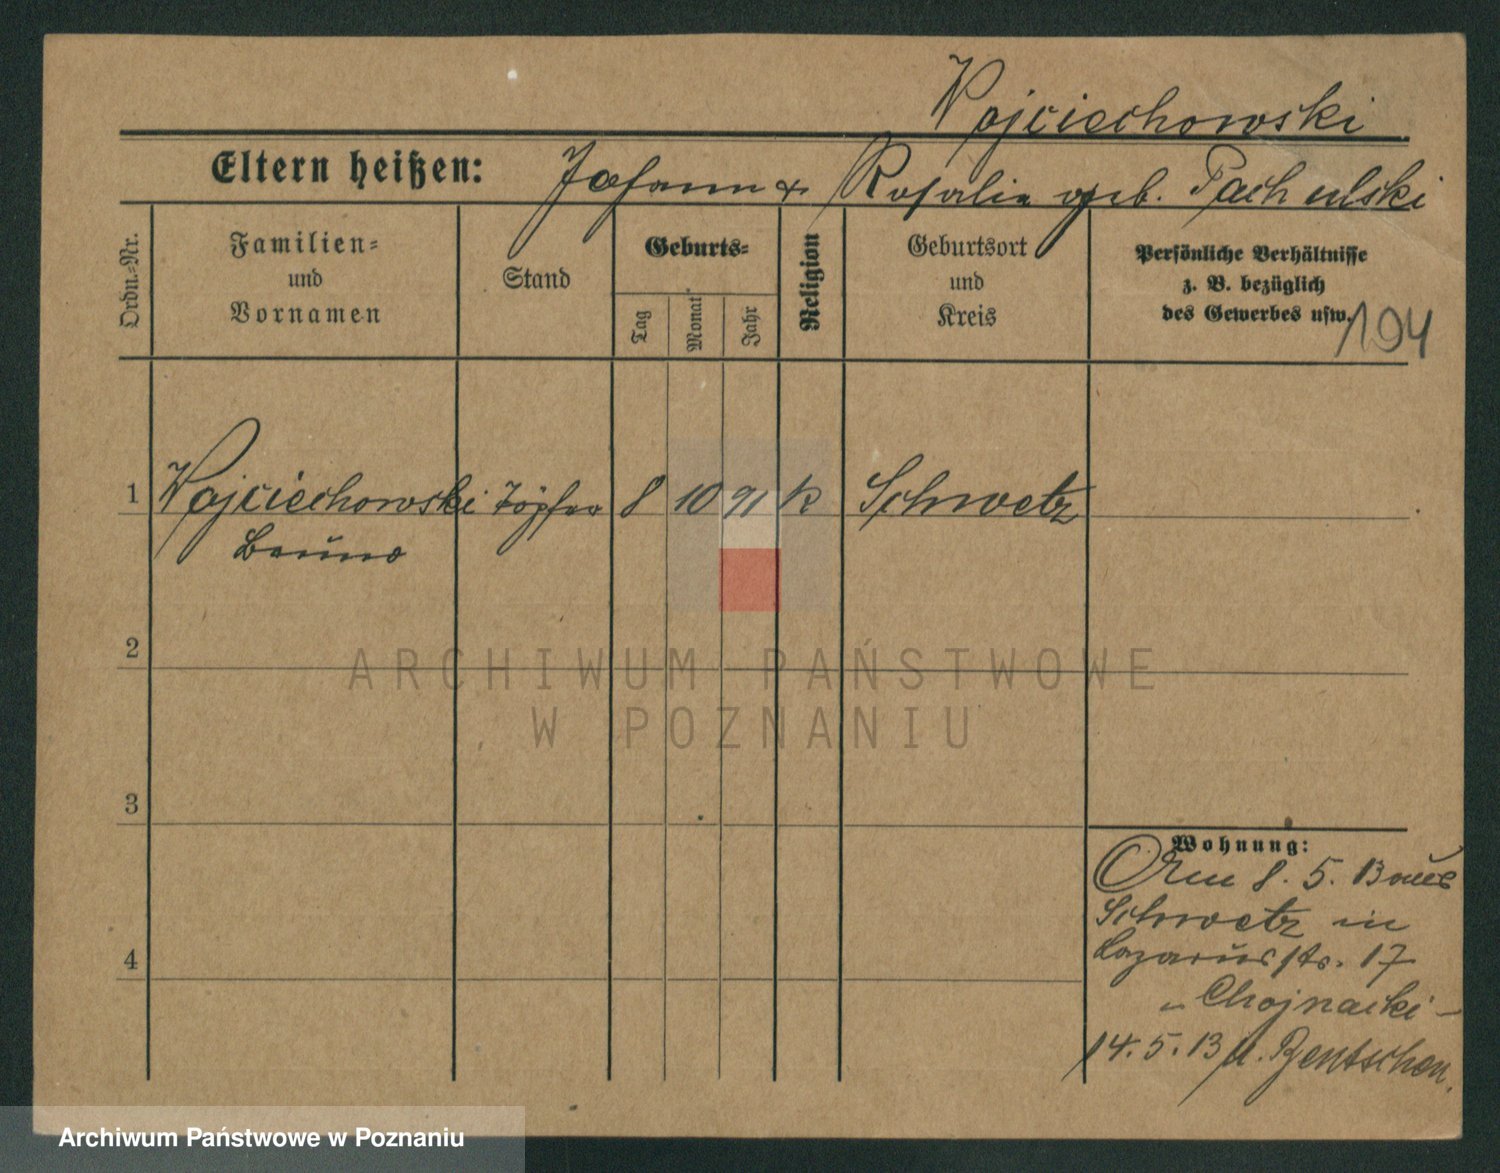 Wojciechowski
Eltern heißen: Johann & Rosalie geb. Pachulski
Ordn.-Nr.
Familien-
und
Vornamen
Stand
Geburts-
Tag
Monat
Jahr
Religion
Geburtsort
und
Kreis
Persönliche Verhältnisse
z. B. bezüglich
des Gewerbes usw.
194
1 Wojciechowski Töpfer 8 10 91 k Schwetz
Bruno
2
3
4
Wohnung:
Am 8. 5. 13 aus
Schwetz in
Lazarusstr. 17
Chojnacki
14. 5. 13 n. Bentschen.
ARCHIWUM PAŃSTWOWE
W POZNANIU
Archiwum Państwowe w Poznaniu